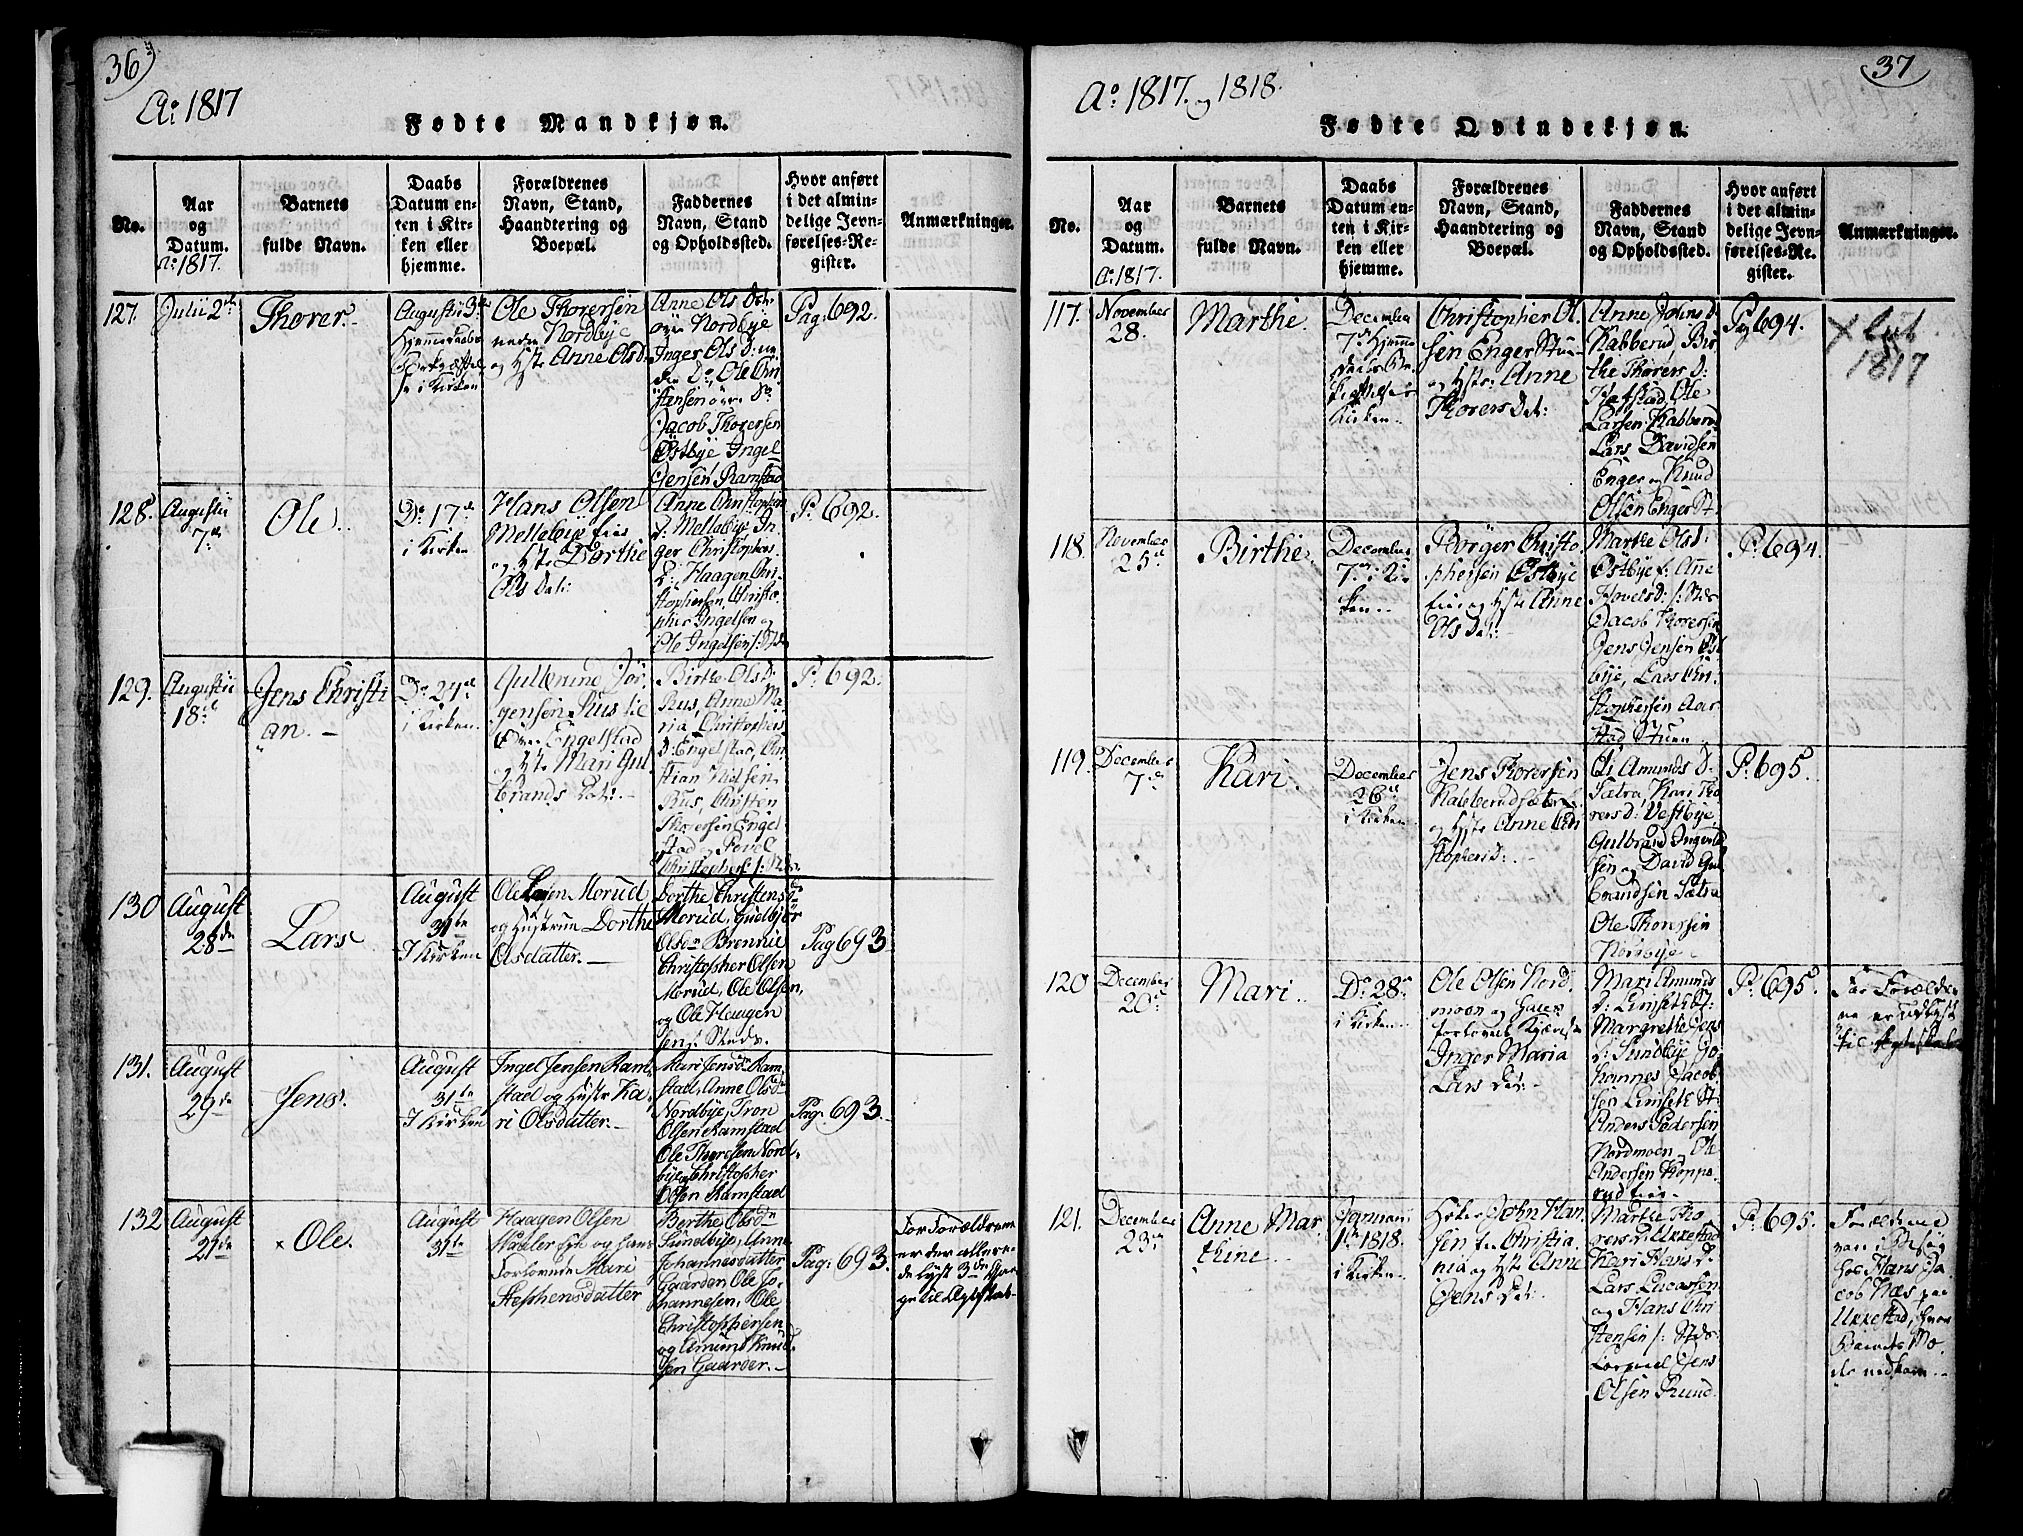 36
Ao: 1817
Fødte Mandkjøn.
No.
Aar
og
Datum.
Ao: 1817.
Barnets
fulde Navn.
Daabs
Datum en-
ten i Kir-
ken eller
hjemme.
Forældrenes
Navn, Stand,
Haandtering og
Boepæl.
Faddernes
Navn, Stand
og Opholdssted.
Hvor anført
i det almin-
delige Jevn-
førelses-Re-
gister.
Anmærkninger.
127.
Julii 2de
Thorer.
Augustii 3de
i Kirken
Ole Thorersen
nedre Nordbye
og Hstr Anne Olsd:
Anne Ols Dat:
øvre Nordbye
Inger Ols D: ne
Jacob Thorersen
Østbye Ingel
Jensen Ramstad
Pag: 692.
128.
Augustii
7de
Ole.
Do 17de
i Kirken
Hans Olsen
Mellebye eier
og Hstr Dorthe
Ols Dat:
Anne Christophers
D: Mellebye In
ger Christophers
D: Haagen Chri
stophersen, Christo
pher Ingelsen og
Ole Ingelsen
P: 692.
129.
Augustii
18de
Jens Christi
an.
Do 24de
i Kirken.
Gulbrand Jør
gensen Huus
Engelstad
og Hstr Mari Gul
brands Dat:
Birthe Ols D:
Anne Ma
ria Christophers
D: Engelstad,
stian Nielsen
Christen
Thorersen Engel
stad og Povel
P: 692.
130
August
28de
Lars
August
31te
I Kirken
Ole Morud
og Hustrue Dorthe
Olsdatter.
Dorthe Christensd
Morud, Gudbjør
Olsdn Brennie
Christopher Olsen
Morud, Ole Olsen,
og Ole Haagen
sen
Pag 693
131.
August
29de
Jens.
August
31te
I Kirken
Ingel Jensen Ram
stad og Hustr Ka
ri Olsdatter.
Mari Jensdn Ram
stad, Anne Olsdn
Nordbye, Tron
Olsen Ramstad
Ole Thoresen Nord
bye, Christopher
Olsen Ramstad
Pag: 693.
132
August
21de
Ole.
August
31te
Haagen Olsen
og hans
Forlovede Mari
Stephensdatter
Berthe Olsdn
Sundbye, Anne
Johannesdatter
Gaarder, Ole Jo
hannesen, Ole
Christophersen
og Amund Knud
sen Gaarder.
Pag: 693.
For Forældrene
er der allere
de lyst 3de Gan
ge til Ægteskab.
37
Ao: 1817. og 1818.
Fødte Qvindekjøn.
No.
Aar
og
Datum.
Ao: 1817.
Barnets
fulde Navn.
Daabs
Datum en-
ten i Kir-
ken eller
hjemme.
Forældrenes
Navn, Stand,
Haandtering og
Boepæl.
Faddernes
Navn, Stand
og Opholdssted.
Hvor anført
i det almin-
delige Jevn-
førelses-Re-
gister.
Anmærkninger.
117.
November
28.
Marthe.
December
7de Hjemme
Kirken.
Christopher Ol
sen Enger Stu
og Hstr: Anne
Thorers Dat:
Anne Johns D:
Kabberud Bir
the Thorers D:
Ole
Larsen Kabberud
Lars Davidsen
Enger og Knud
Olsen Enger St.
Pag 694.
1817
118.
November
25de
Birthe.
December
7de i Kir
ken.
Børger Christo
phersen Østbye
Eier og Hstr Anne
Ols Dat:
Marthe Ols D:
Østbye E: Anne
Povels D:
Jacob Thorersen
Jens Jensen Øst
bye, Lars Chri
stophersen Aar
stad Stuen
P: 694.
119.
December
7de
Kari
December
26de
i Kirken
Jens Thorersen
Kabberudsæter
og Hstr Anne Chri
stophers D:
Amunds D:
Sætra, Kari Tho
rers D: Vestbye,
Gulbrand
sen og David Gul
brandsen Sætra
Ole Thorersen
Nordbye
P: 695.
120
December
20de
Mari
Do 28de
i Kirken
Ole Olsen Nord
moen og hans
forlovede
Inger Maria
Lars Dat:
Mari Amunds
D: Linseth
Margrethe Jens
D: Sundbye Jo
hannes Jacob
sen Linseth St:
Anders Pedersen
Nordmoen, Ole
Andersen
rud Eier
P: 695.
For Forældre
ne er udlyst
til Ægteskab
121.
December
23de
Anne Mar
thine
Januarii
1te 1818.
i Kirken
John Han
sen fra Christia
nia og Hstr Anne
Jens Dat:
Marthe Tho
rers D: Ukkestad
Kari Hans D:
Lars Lucassen
og Hans Chri
stensen
Jens
Olsen Rund
P: 695.
Forældrene
vare i Besøg
hos Hans Ja
cob Næs paa
Ukkestad, hvor
Barnets Mo
der nedkom